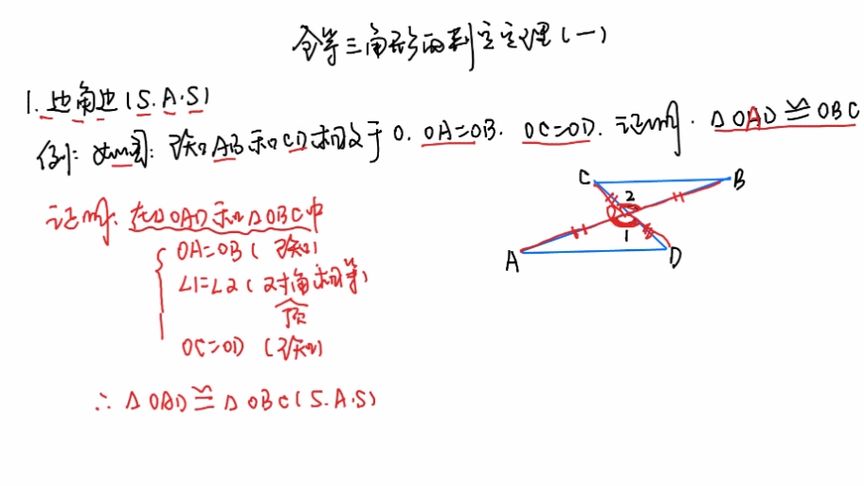 全等三角形的判定定理(一)
1.边角边(S.A.S)
例:如图:已知AB和CD相交于O. OA=OB. OC=OD. 证明. △OAD≌OBC
证明:在△OAD和△OBC中
OA=OB(已知)
∠1=∠2(对角相等)
顶
OC=OD (已知)
∴ △OAD≌△OBC(S.A.S)
C
B
2
O
1
A
D